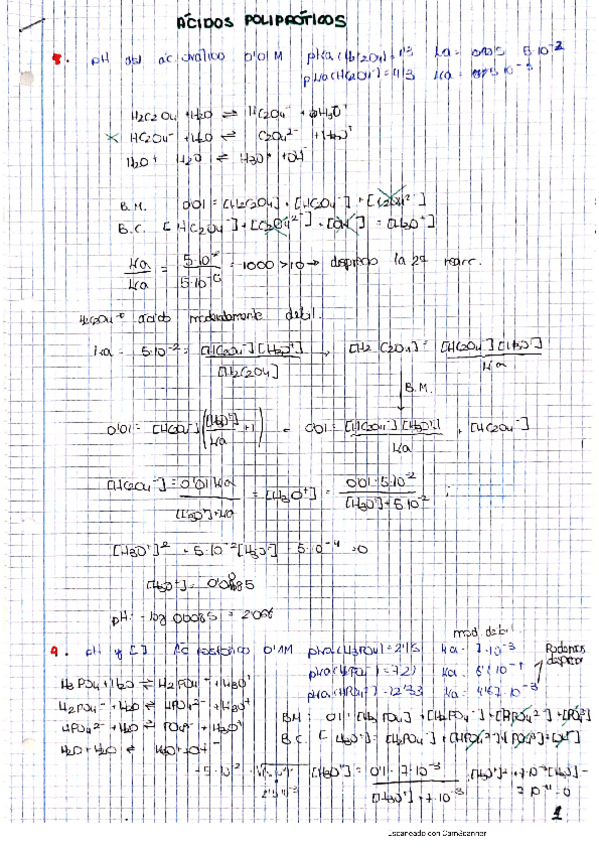 ÁCIDOS POLIPRÓTICOS
8. pH del ác. oxálico 0'01M pka(H2C2O4)=1'3 ka= 5·10⁻²
pka(HC2O4⁻)=4'3 ka= 5·10⁻⁵
H2C2O4 + H2O ⇌ HC2O4⁻ + H3O⁺
× HC2O4⁻ + H2O ⇌ C2O4²⁻ + H3O⁺
H2O + H2O ⇌ H3O⁺ + OH⁻
B.M. 0'01 = [H2C2O4] + [HC2O4⁻] + [C2O4²⁻]
B.C. [HC2O4⁻] + [C2O4²⁻] + [OH⁻] = [H3O⁺]
ka/ka = 5·10⁻²/5·10⁻⁵ = 1000 > 10 → desprecio la 2ª reacc.
H2C2O4 → ácido moderadamente débil.
ka = 5·10⁻² = [HC2O4⁻][H3O⁺]/[H2C2O4] , [H2C2O4] = [HC2O4⁻][H3O⁺]/ka
↓ B.M.
0'01 = [HC2O4⁻]([H3O⁺]/ka + 1) = 0'01 = [HC2O4⁻][H3O⁺]/ka + [HC2O4⁻]
[HC2O4⁻] = 0'01·ka/[H3O⁺]+ka = [H3O⁺] = 0'01·5·10⁻²/[H3O⁺]+5·10⁻² ;
[H3O⁺]² + 5·10⁻²[H3O⁺] - 5·10⁻⁴ = 0
[H3O⁺] = 0'0085
pH = -log 0'0085 =
9. pH y [ ] Ác. fosfórico 0'1M pka(H3PO4)=2'15 ka= 7·10⁻³
mod. débil
pka(H2PO4⁻)=7'21
pka(HPO4²⁻)=12'33 ka= 4'67·10⁻¹³
Podemos
H3PO4 + H2O ⇌ H2PO4⁻ + H3O⁺
H2PO4⁻ + H2O ⇌ HPO4²⁻ + H3O⁺
HPO4²⁻ + H2O ⇌ PO4³⁻ + H3O⁺
H2O + H2O ⇌ H3O⁺ + OH⁻
B.M: 0'1 = [H3PO4] + [H2PO4⁻] + [HPO4²⁻] + [PO4³⁻]
B.C. [H3O⁺] = [H2PO4⁻] + [HPO4²⁻] + [PO4³⁻] + [OH⁻]
[H3O⁺] = 0'1·7·10⁻³/[H3O⁺]+7·10⁻³
1
Escaneado con CamScanner